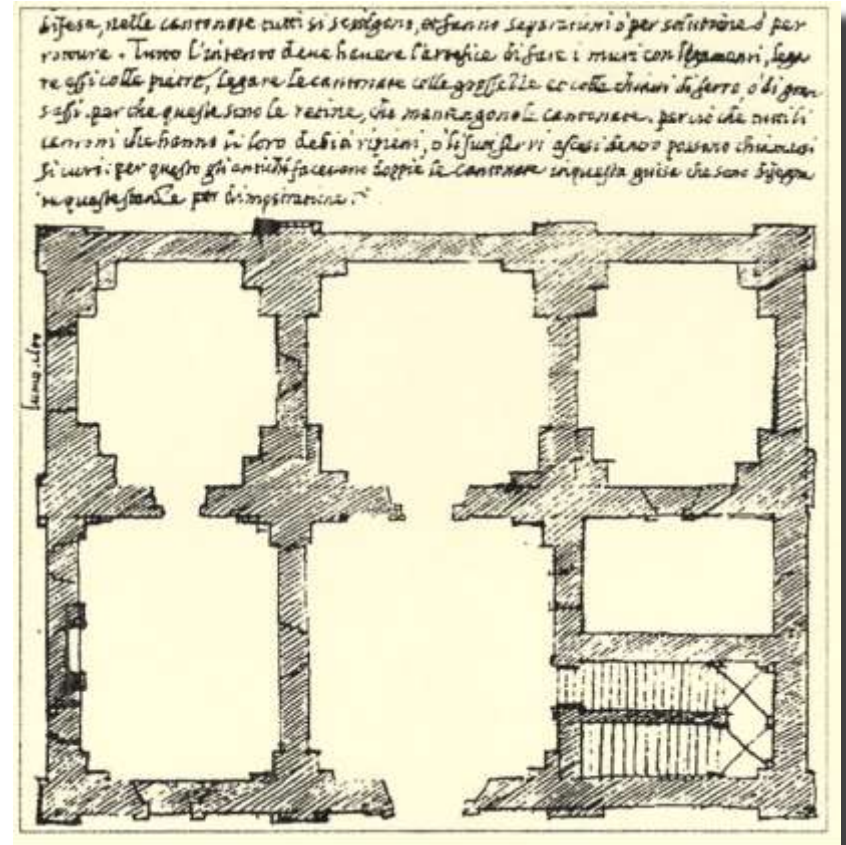 difesa, nelle cantonate tutti si sciolgono, et fanno separationi ò per solutione ò per
rotture. Tutto l'intento deve havere l'artefice di fare i muri con legamenti, lega
re assi colle pietre, legare le cantonate colle grosse et colle chiavi di ferro, ò di gran
sassi. perche queste sono le retine, che mantengono le cantonate. perciò che tutti li
che hanno li loro debiti ripieni, ò li suoi dentro possono chiamarsi
sicuri: per questo gli antichi facevano doppie le cantonate in questa guisa che sono
re queste stanze per dimostratione.